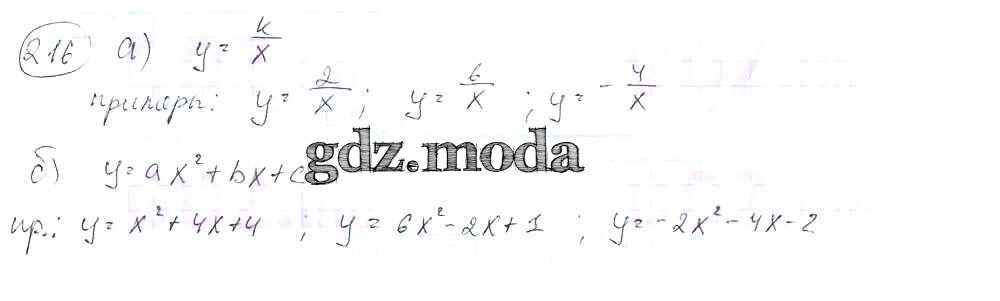 216 а) y = k/x
примеры: y = 2/x ; y = 6/x ; y = - 4/x
б) y = ax² + bx + c gdz.moda
пр.: y = x² + 4x + 4 ; y = 6x² - 2x + 1 ; y = -2x² - 4x - 2